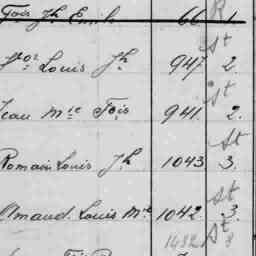 Fois Jh Emile 66 R 1
Fois Louis Jh 947 St 2
Jean Mie Fois 941 St 2.
Romain Louis Jh 1043 St 3.
Amand Louis Mie 1042 St 3.
1432 St 3